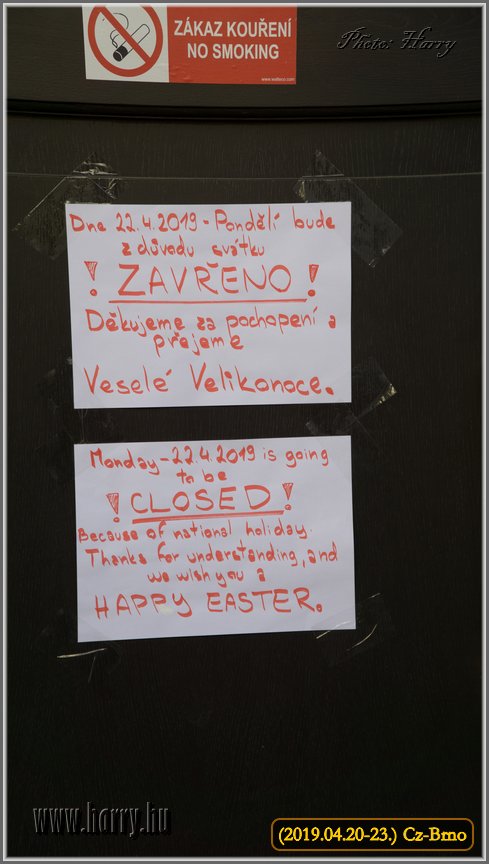 ZÁKAZ KOUŘENÍ
NO SMOKING
Photo: Harry
Dne 22.4.2019 - Pondělí bude
z důvodu svátku
! ZAVŘENO !
Děkujeme za pochopení a
přejeme
Veselé Velikonoce.
Monday - 22.4.2019 is going
to be
! CLOSED !
Because of national holiday.
Thanks for understanding, and
we wish you a
HAPPY EASTER.
www.harry.hu
(2019.04.20-23.) Cz-Brno